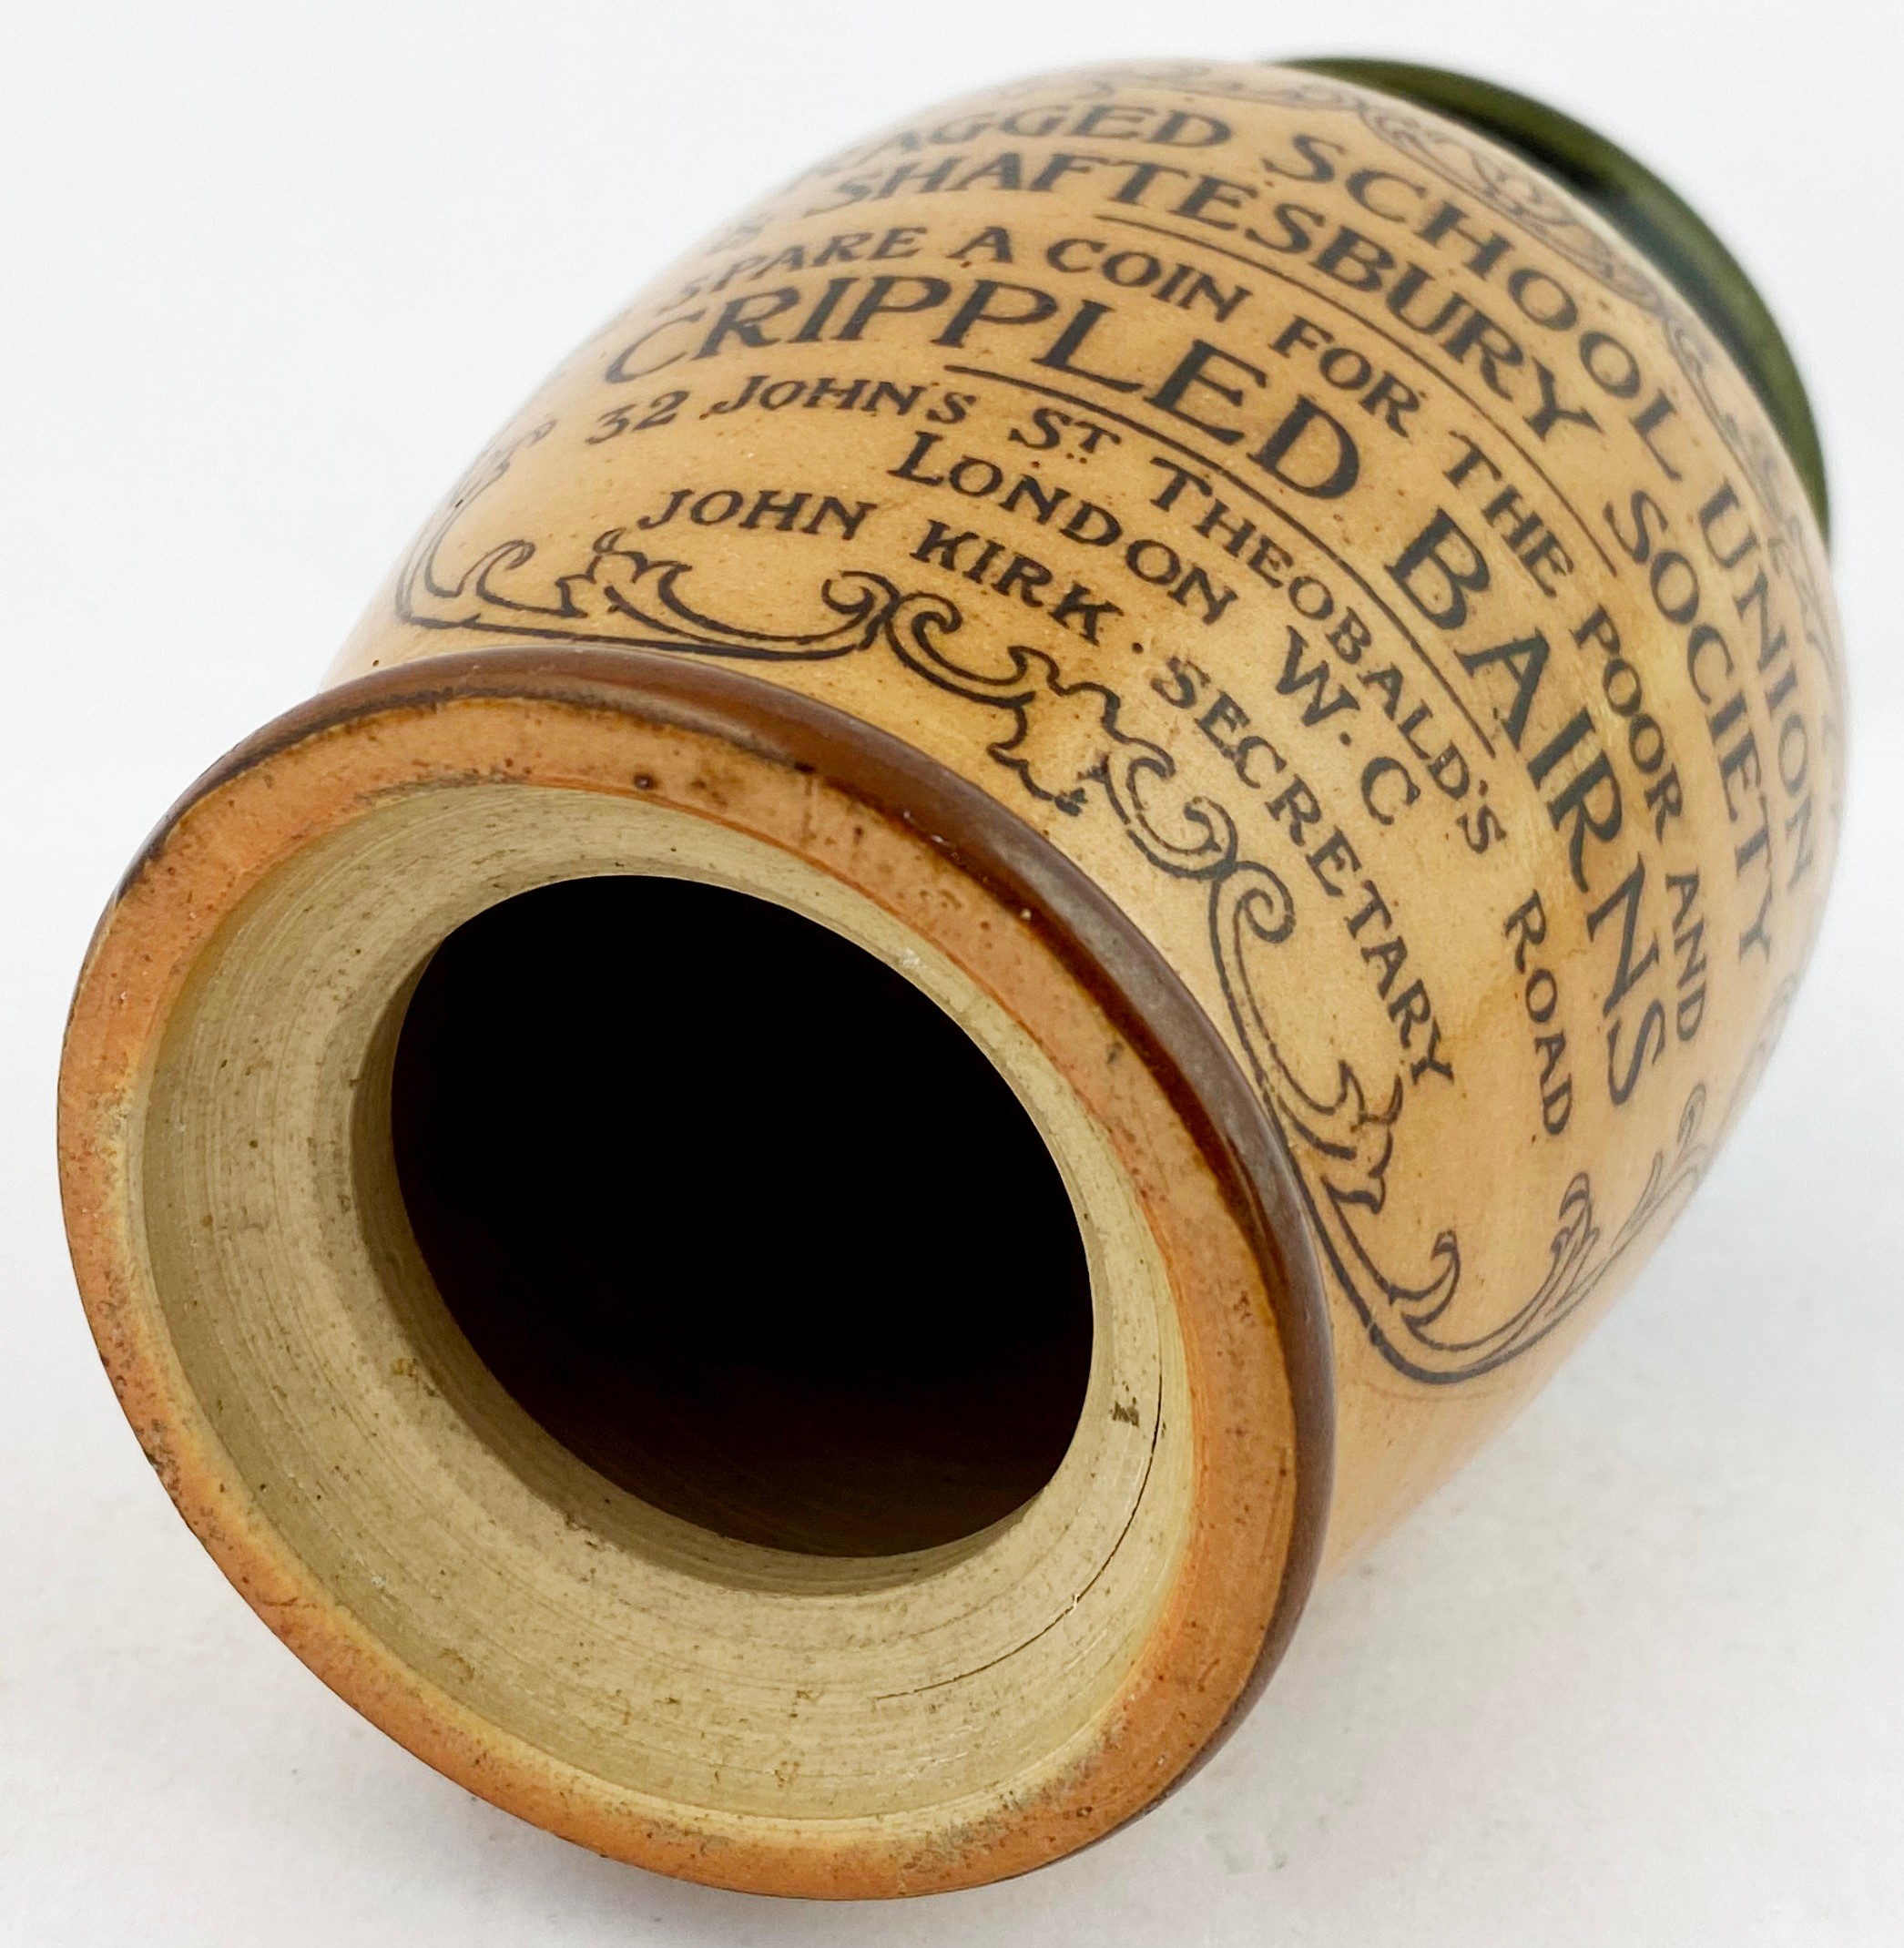 RAGGED SCHOOL UNION
& SHAFTESBURY SOCIETY
SPARE A COIN FOR THE POOR AND
CRIPPLED BAIRNS
32 JOHN'S ST THEOBALD'S ROAD
LONDON W.C
JOHN KIRK. SECRETARY